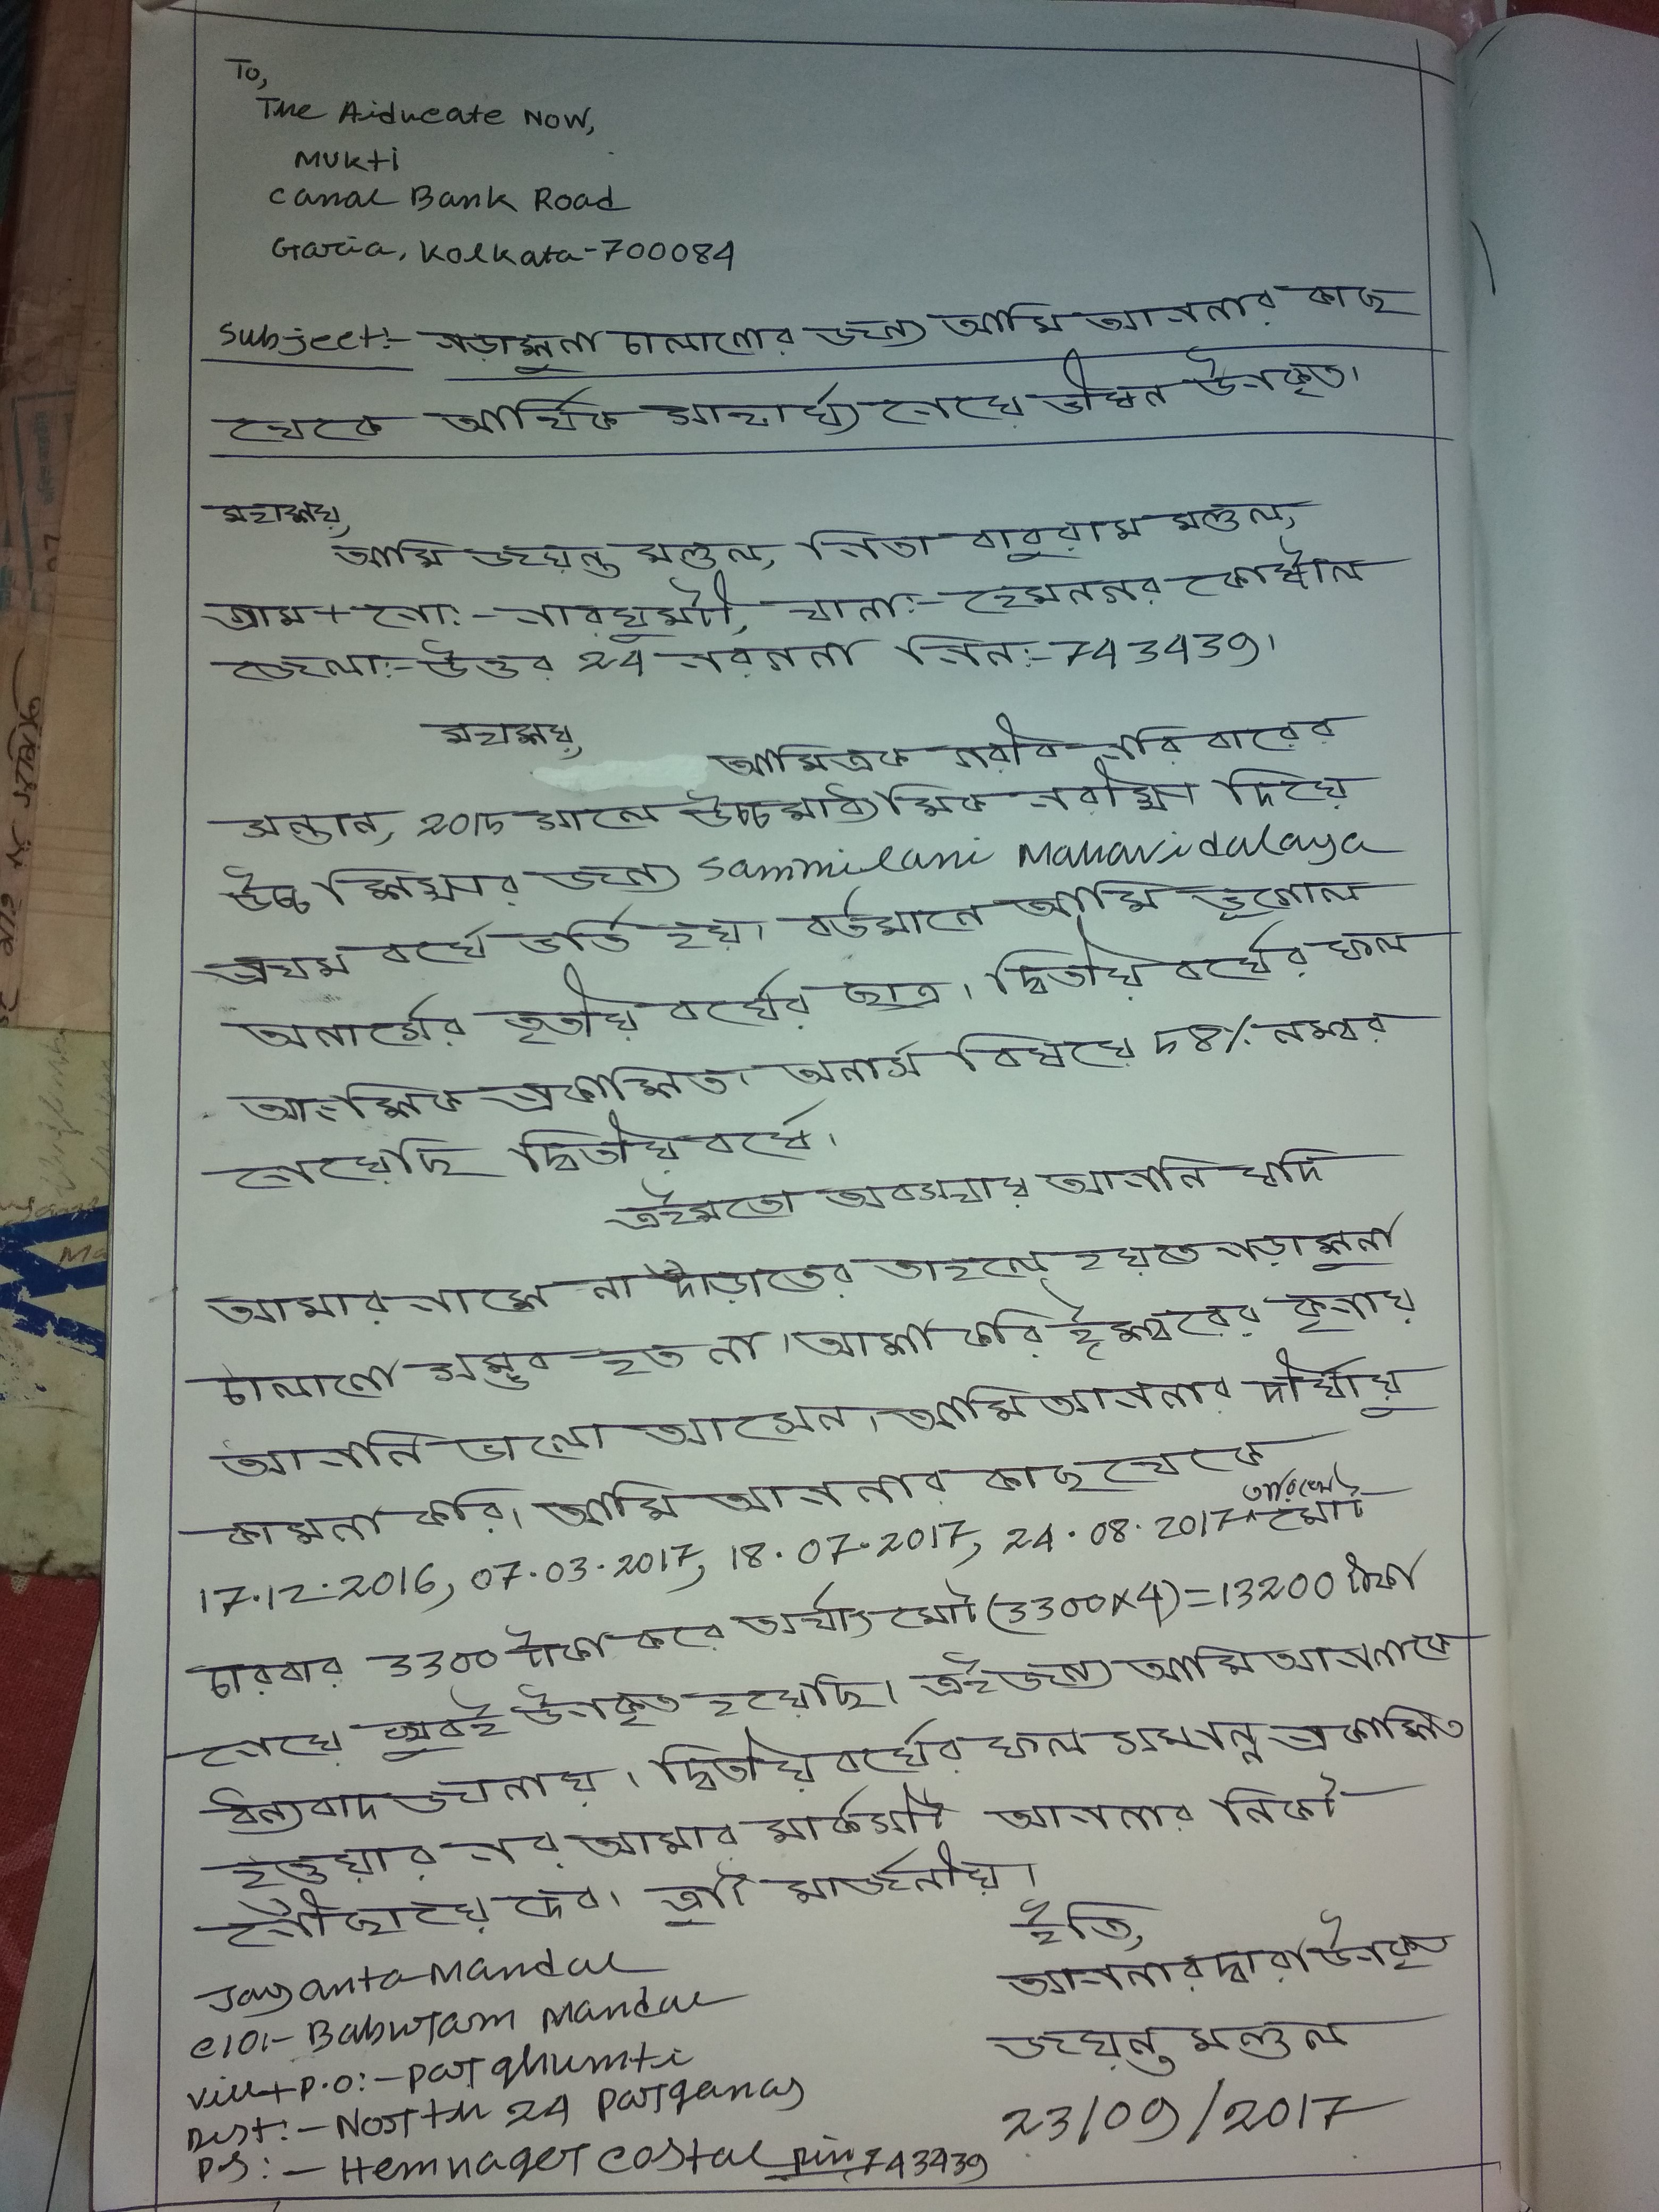 To,
The Aiducate Now,
Mukti
Canal Bank Road
Garia, Kolkata-700084
Subject:- পড়াশুনা চালানোর জন্য আমি আপনার কাছ
থেকে আর্থিক সাহার্য্য পেয়ে ভীষন উপকৃত।
মহাশয়,
আমি জয়ন্ত মণ্ডল, পিতা বাবুরাম মণ্ডল,
গ্রাম + পো:- পারঘুমটী, থানা:- হেমনগর কোষ্টাল
জেলা:- উত্তর 24 পরগনা পিন:- 743439।
মহাশয়,
আমি এক গরীব পরিবারের
সন্তান, 2015 সালে উচ্চমাধ্যমিক পরীক্ষা দিয়ে
উচ্চ শিক্ষার জন্য Sammilani Mahavidalaya
প্রথম বর্ষে ভর্তি হয়। বর্তমানে আমি ভূগোল
অনার্সের তৃতীয় বর্ষের ছাত্র। দ্বিতীয় বর্ষের ফল
আংশিক প্রকাশিত। অনার্স বিষয়ে ৫৪% নম্বর
পেয়েছি দ্বিতীয় বর্ষে।
এইমতো অবস্থায় আপনি যদি
আমার পাশে না দাঁড়াতের তাহলে হয়তে পড়াশুনা
চালানো সম্ভব হত না। আশা করি ঈশ্বরের কৃপায়
আপনি ভালো আসেন। আমি আপনার দীর্ঘায়ু
কামনা করি। আমি আপনার কাছ থেকে
17.12.2016, 07.03.2017, 18.07.2017, 24.08.2017 তারিখে মোট
চারবার 3300 টাকা করে অর্থাৎ মোট (3300x4)=13200 টাকা
পেয়ে খুবই উপকৃত হয়েছি। এইজন্য আমি আপনাকে
ধন্যবাদ জানায়। দ্বিতীয় বর্ষের ফল সম্পন্ন প্রকাশিত
হওয়ার পর আমার মার্কসীট আপনার নিকট
পৌঁছায়ে দেব। ত্রুটি মার্জনীয়।
ইতি,
আপনার দ্বারা উপকৃত
জয়ন্ত মণ্ডল
23/09/2017
Jayanta Mandal
C/O:- Baburam Mandal
Vill+P.O:- Parghumti
Dist:- North 24 Parganas
P.S:- Hemnager Costal pin 743439